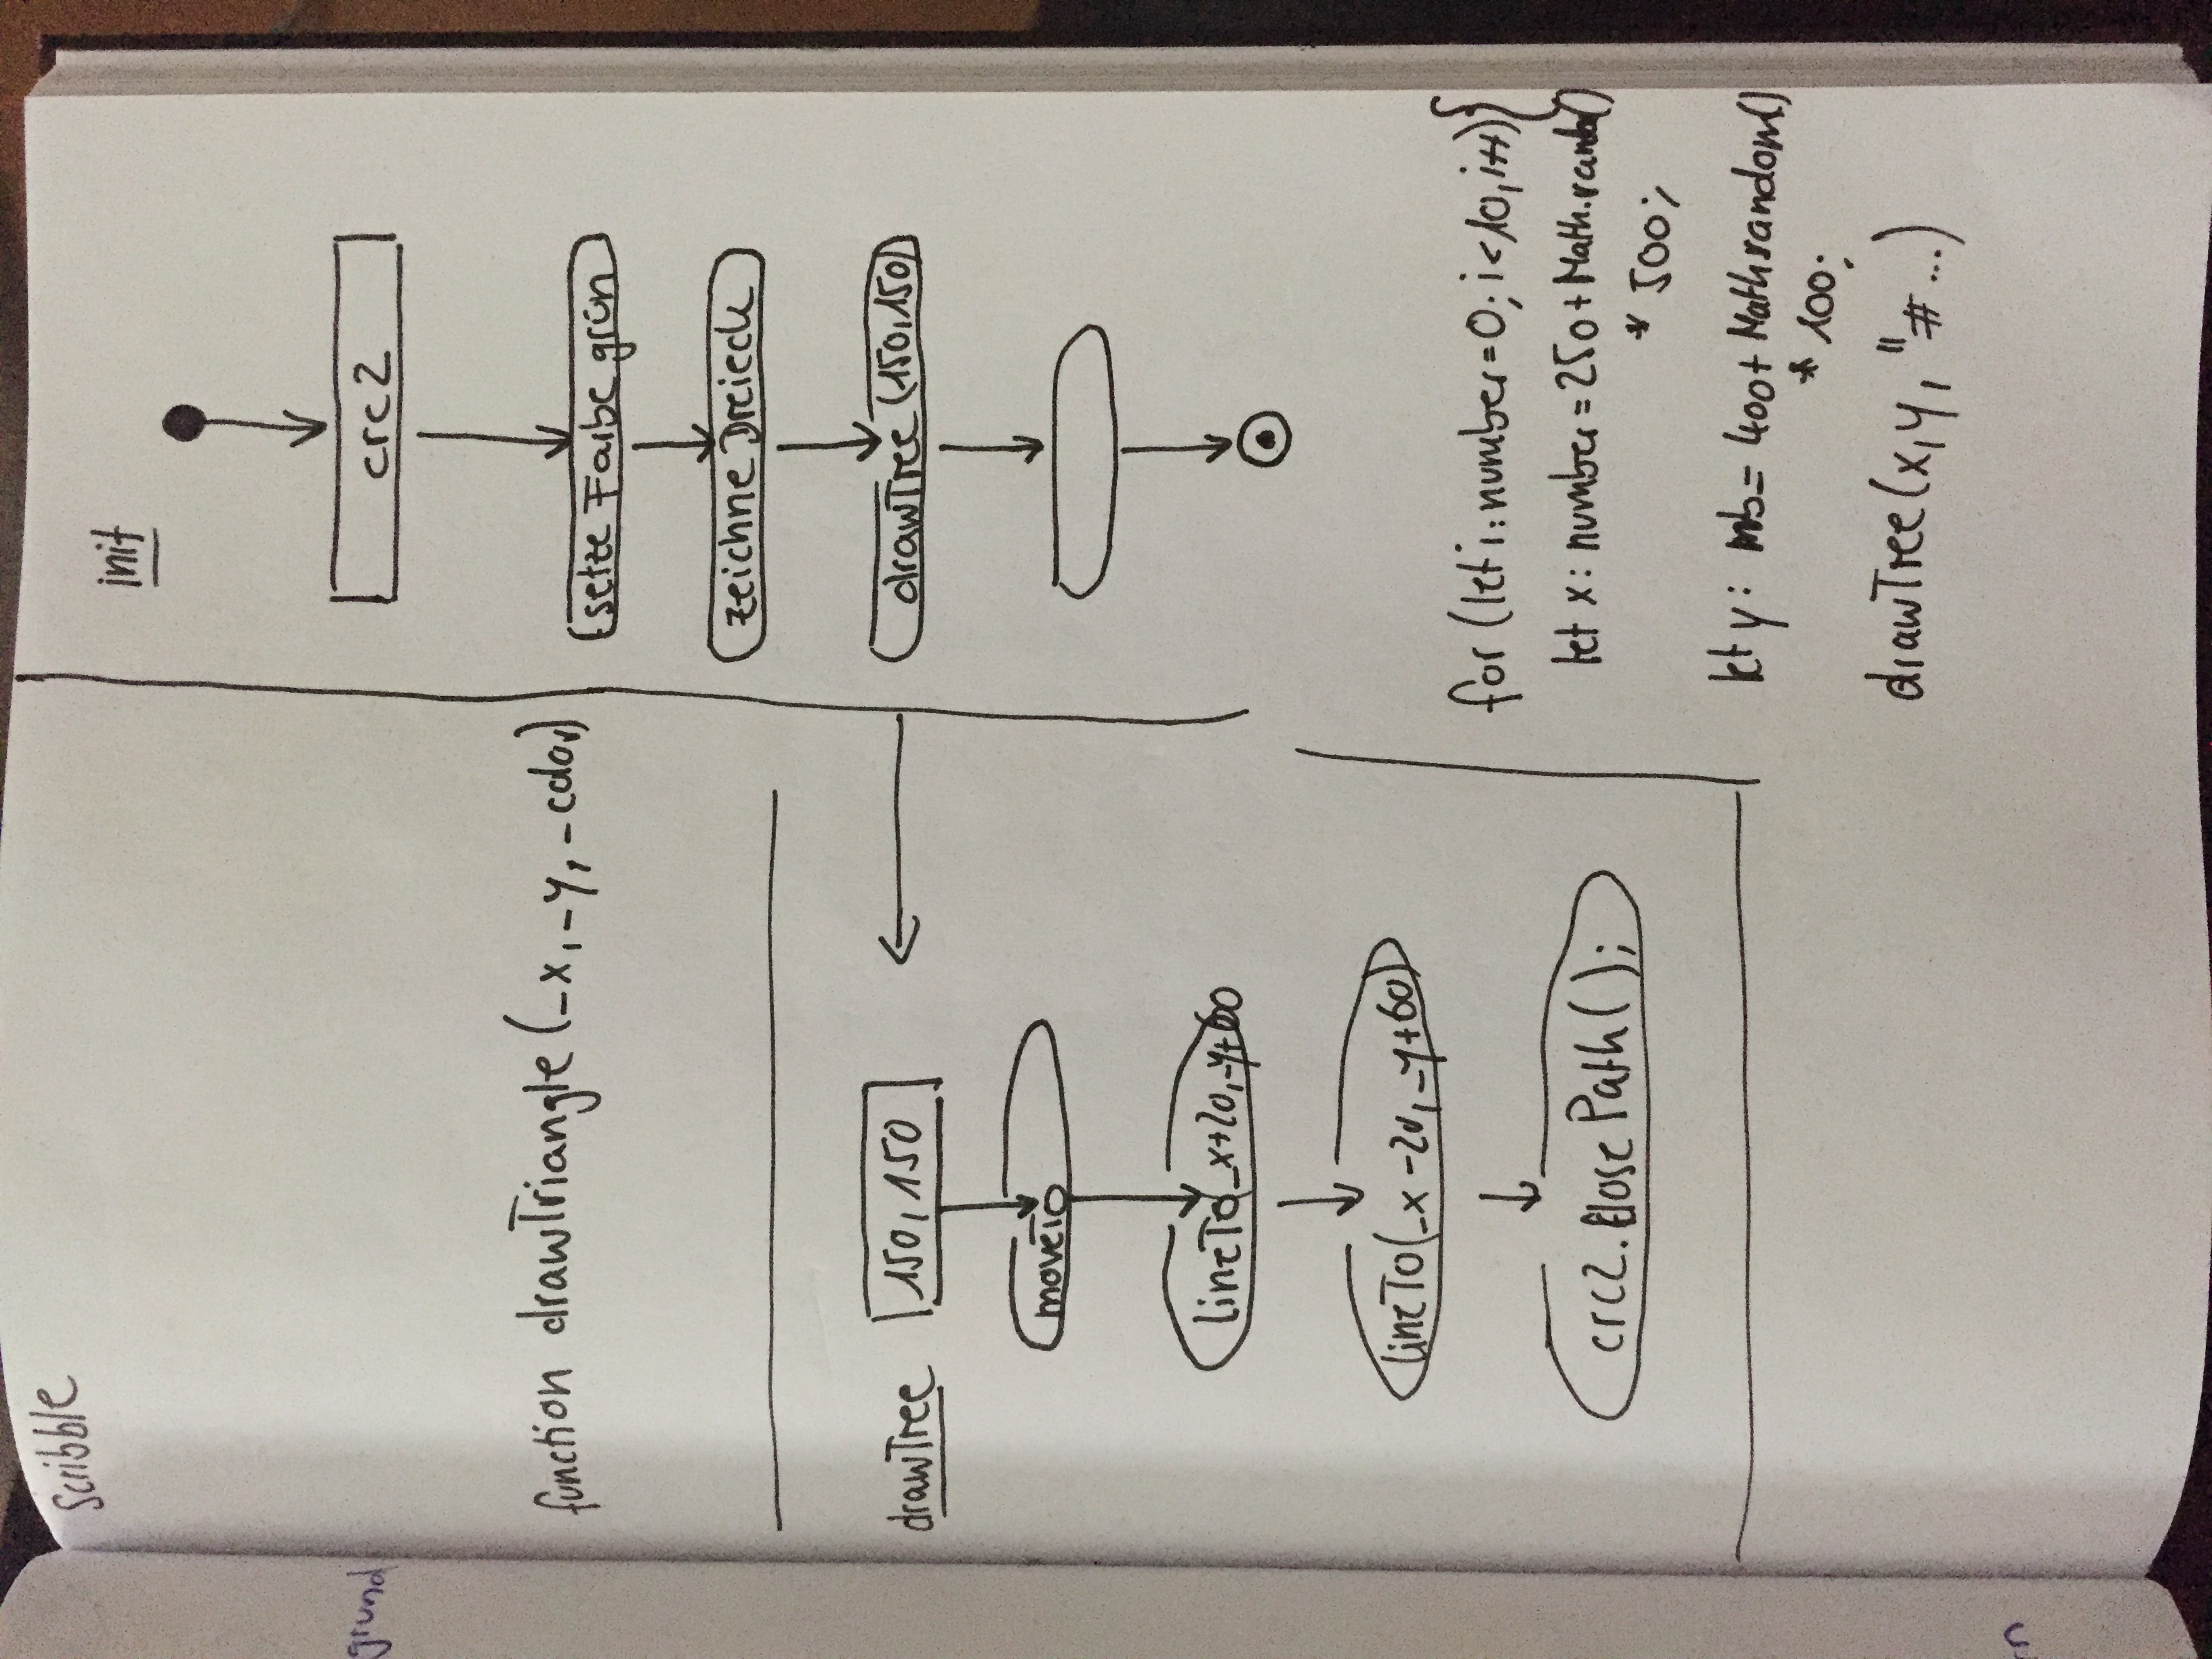 Scribble
grund
function drawTriangle (_x, _y, _color)
drawTree
150, 150
moveTo
lineTo(_x+20, _y+60
lineTo(_x -20, _y+60)
crc2.closePath();
rn
init
crc2
setze Farbe grün
zeichne Dreieck
drawTree (150,150)
for (let i: number = 0; i < 10, i++){
let x: number = 250 + Math.random()
* 500;
let y: nb = 400+ Math.random()
* 100;
drawTree(x, y, "# ...)